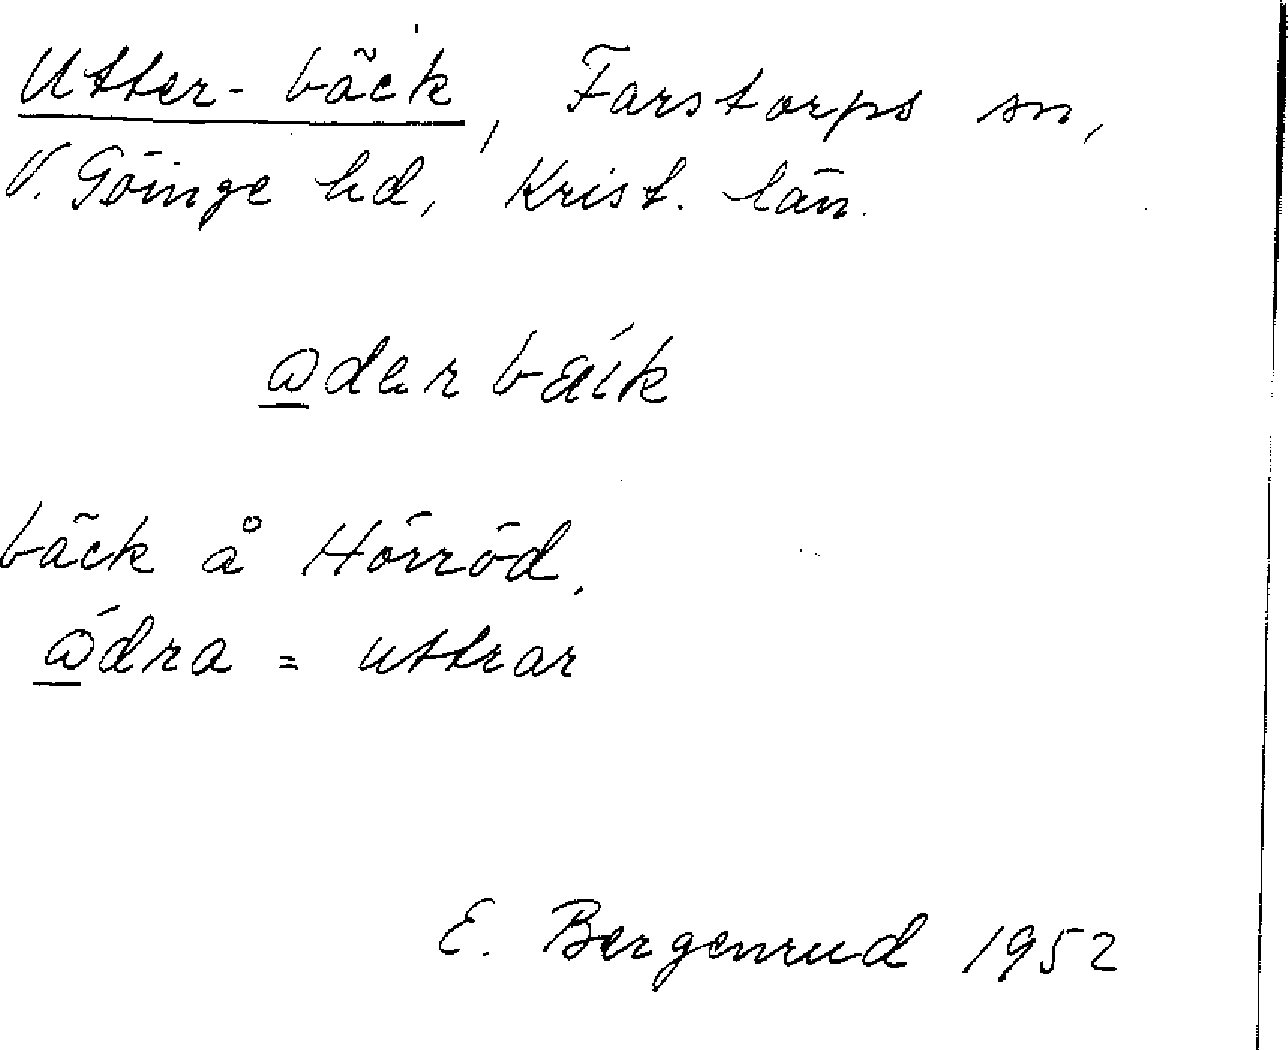 Utter-bäck, Farstorps sn,
V. Göinge hd, Krist. län.
@derbæik
bäck å Hörröd.
@dra = uttrar
E. Bergenrud 1952